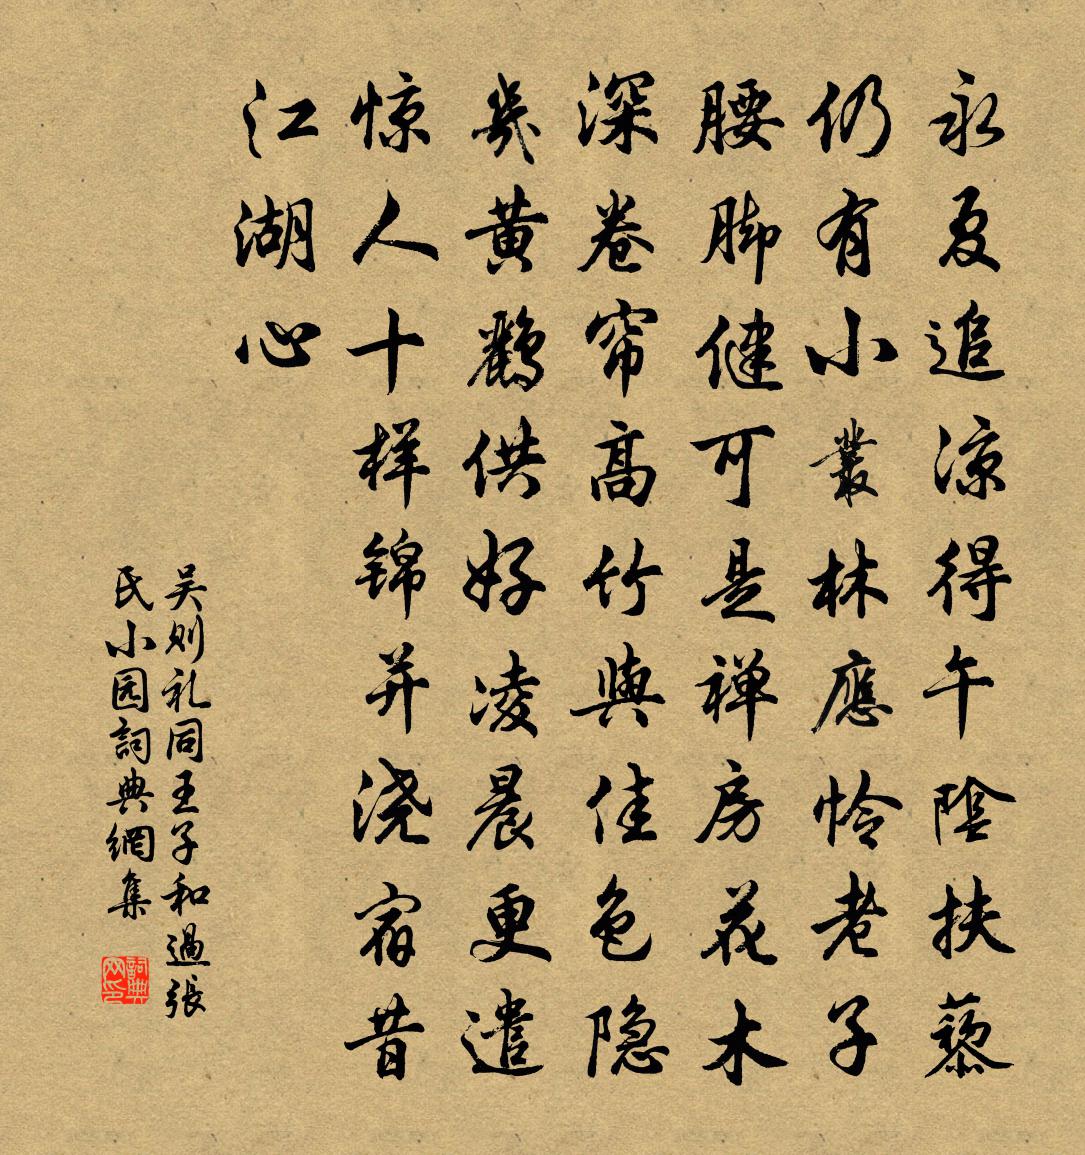 永夏追涼得午陰扶藜
仍有小叢林應怜老子
腰脚健可是禅房花木
深卷帘高竹與佳色隐
幾黄鸝供好凌晨更遣
惊人十样锦并浇宿昔
江湖心
吴则礼同王子和過張
氏小园詞典網集
詞典网印